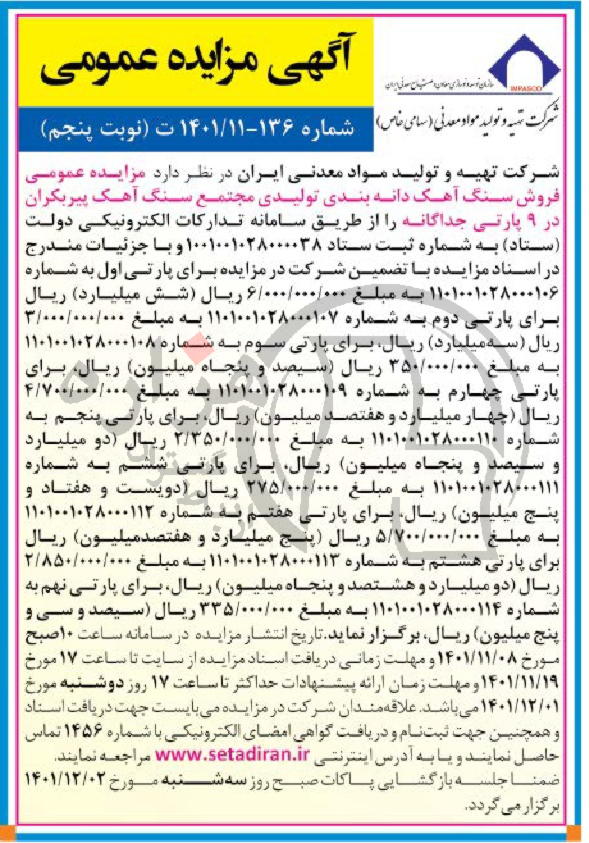 آگهی مزایده عمومی
شماره ۱۳۶-۱۴۰۱/۱۱ ت (نوبت پنجم)
IMPASCO
شرکت تهیه و تولید مواد معدنی (سهامی خاص)
شرکت تهیه و تولید مواد معدنی ایران در نظر دارد مزایده عمومی
فروش سنگ آهک دانه بندی تولیدی مجتمع سنگ آهک پیربکران
در ۹ پارتی جداگانه را از طریق سامانه تدارکات الکترونیکی دولت
(ستاد) به شماره ثبت ستاد ۱۰۰۱۰۰۱۰۲۸۰۰۰۰۳۸ و با جزئیات مندرج
در اسناد مزایده با تضمین شرکت در مزایده برای پارتی اول به شماره
۱۱۰۱۰۰۱۰۲۸۰۰۰۱۰۶ به مبلغ ۶/۰۰۰/۰۰۰/۰۰۰ ریال (شش میلیارد) ریال
برای پارتی دوم به شماره ۱۱۰۱۰۰۱۰۲۸۰۰۰۱۰۷ به مبلغ ۳/۰۰۰/۰۰۰/۰۰۰
ریال (سه میلیارد) ریال، برای پارتی سوم به شماره ۱۱۰۱۰۰۱۰۲۸۰۰۰۱۰۸
به مبلغ ۳۵۰/۰۰۰/۰۰۰ ریال (سیصد و پنجاه میلیون) ریال، برای
پارتی چهارم به شماره ۱۱۰۱۰۰۱۰۲۸۰۰۰۱۰۹ به مبلغ ۴/۷۰۰/۰۰۰/۰۰۰
ریال (چهار میلیارد و هفتصد میلیون) ریال، برای پارتی پنجم به
شماره ۱۱۰۱۰۰۱۰۲۸۰۰۰۱۱۰ به مبلغ ۲/۳۵۰/۰۰۰/۰۰۰ ریال (دو میلیارد
و سیصد و پنجاه میلیون) ریال، برای پارتی ششم به شماره
۱۱۰۱۰۰۱۰۲۸۰۰۰۱۱۱ به مبلغ ۲۷۵/۰۰۰/۰۰۰ ریال (دویست و هفتاد و
پنج میلیون) ریال، برای پارتی هفتم به شماره ۱۱۰۱۰۰۱۰۲۸۰۰۰۱۱۲
به مبلغ ۵/۷۰۰/۰۰۰/۰۰۰ ریال (پنج میلیارد و هفتصدمیلیون) ریال
برای پارتی هشتم به شماره ۱۱۰۱۰۰۱۰۲۸۰۰۰۱۱۳ به مبلغ ۲/۸۵۰/۰۰۰/۰۰۰
ریال (دو میلیارد و هشتصد و پنجاه میلیون) ریال، برای پارتی نهم به
شماره ۱۱۰۱۰۰۱۰۲۸۰۰۰۱۱۴ به مبلغ ۳۳۵/۰۰۰/۰۰۰ ریال (سیصد و سی و
پنج میلیون) ریال، برگزار نماید. تاریخ انتشار مزایده در سامانه ساعت ۱۰صبح
مورخ ۱۴۰۱/۱۱/۰۸ و مهلت زمانی دریافت اسناد مزایده از سایت تا ساعت ۱۷ مورخ
۱۴۰۱/۱۱/۱۹ و مهلت زمان ارائه پیشنهادات حداکثر تا ساعت ۱۷ روز دوشنبه مورخ
۱۴۰۱/۱۲/۰۱ می‌باشد. علاقه‌مندان شرکت در مزایده می‌بایست جهت دریافت اسناد
و همچنین جهت ثبت‌نام و دریافت گواهی امضای الکترونیکی با شماره ۱۴۵۶ تماس
حاصل نمایند و یا به آدرس اینترنتی www.setadiran.ir مراجعه نمایند.
ضمنا جلسه بازگشایی پاکات صبح روز سه‌شنبه مورخ ۱۴۰۱/۱۲/۰۲
برگزار می گردد.